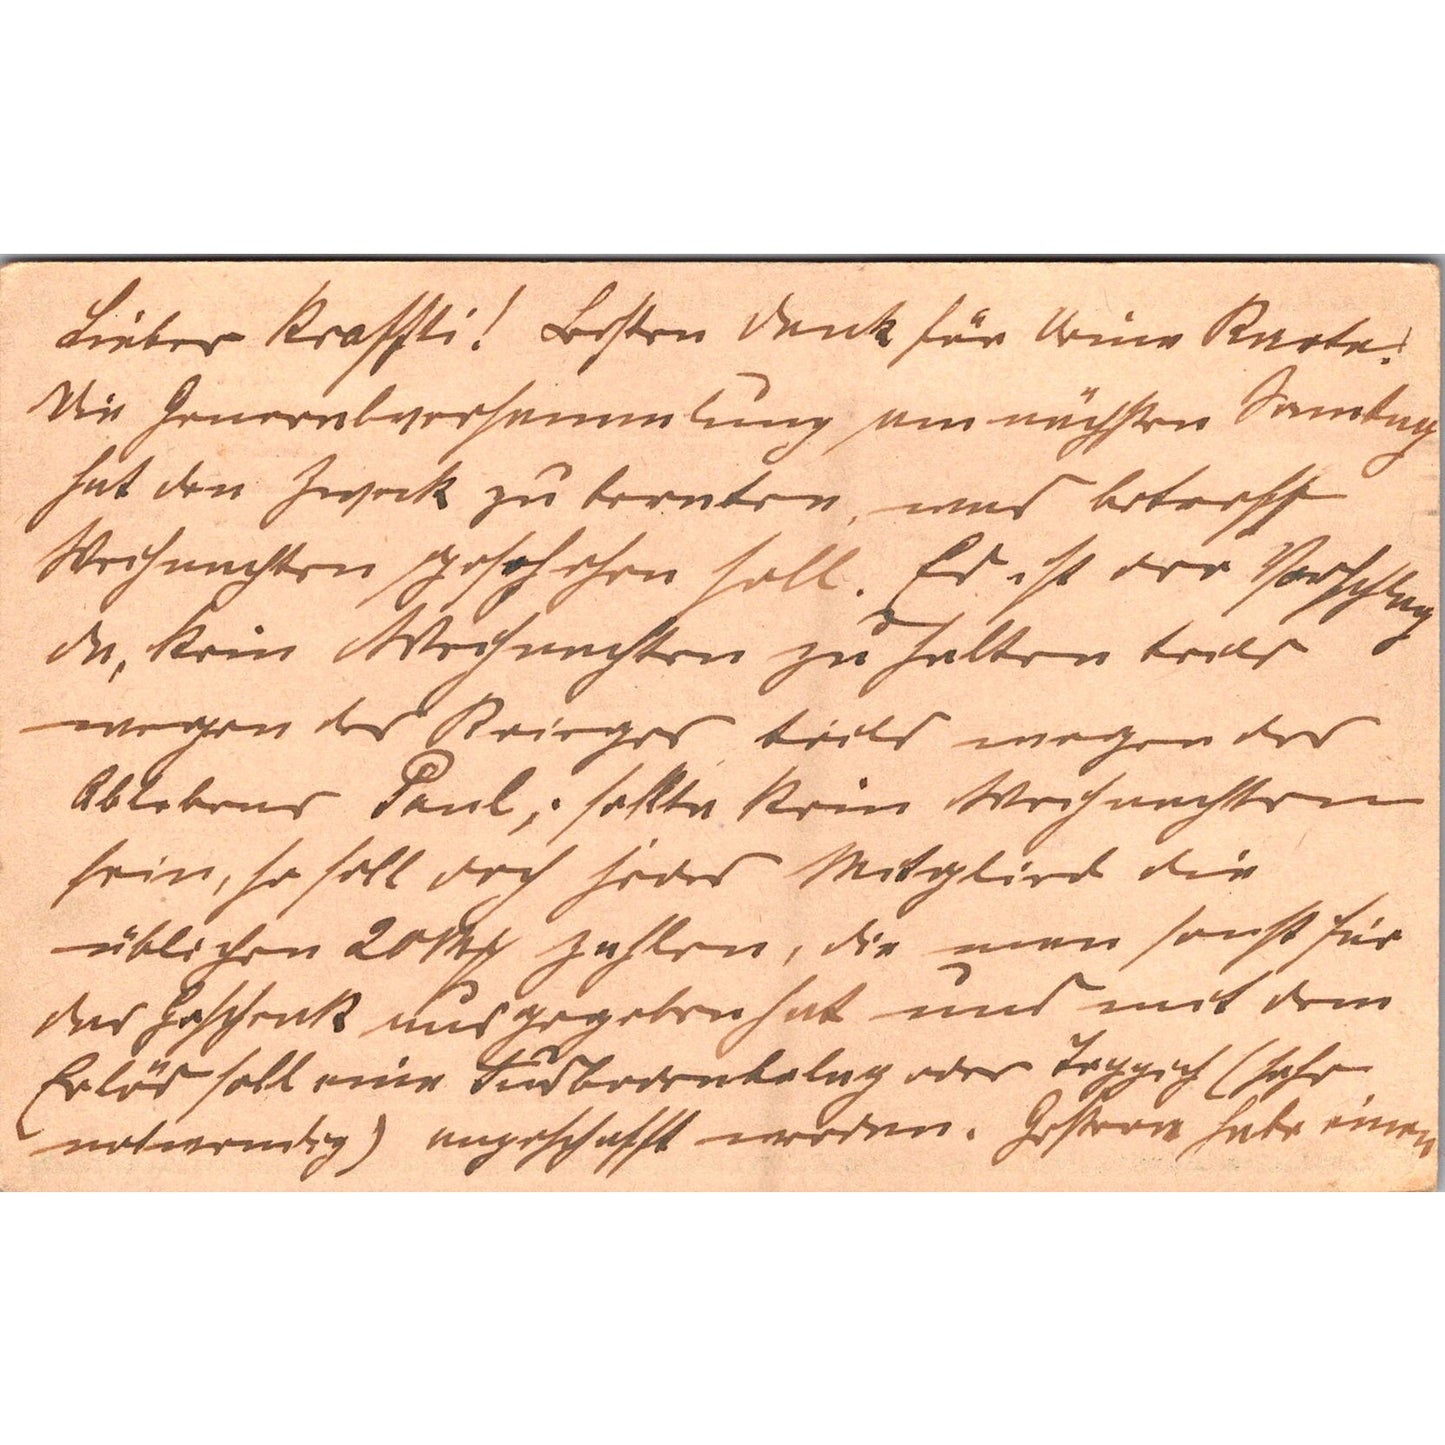 Lieber Kraffti! Besten Dank für Deine Karte!
Die Generalversammlung am nächsten Samstag
hat den Zweck zu beraten, was betreff
Weihnachten geschehen soll. Es ist der Vorschlag
da, kein Weihnachten zu halten teils
wegen des Krieges teils wegen des
Ablebens Paul; sollte kein Weihnachten
sein, so soll doch jedes Mitglied die
üblichen 20 Mk zahlen, die man sonst für
das Geschenk ausgegeben hat und mit dem
Erlös soll eine Fusbodenbelag oder Teppich (sehr
notwendig) angeschafft werden. Gestern habe einen